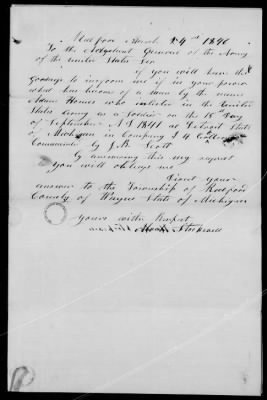 Redford March 24th 1846
To the Adjutant General of the Army
of the United States Sir
if you will have the
goodness to inform me if in your power
what has become of a man by the name
Adam Homes who enlisted in the United
States Army as a Soldier on the 15th Day
of September AD 1841 at Detroit State
of Michigan in Company I 4
Commanded by J.B. Scott
By answering this my request
you will oblige me
Direct your
answer to the Township of Redford
County of Wayne State of Michigan
yours with Respect